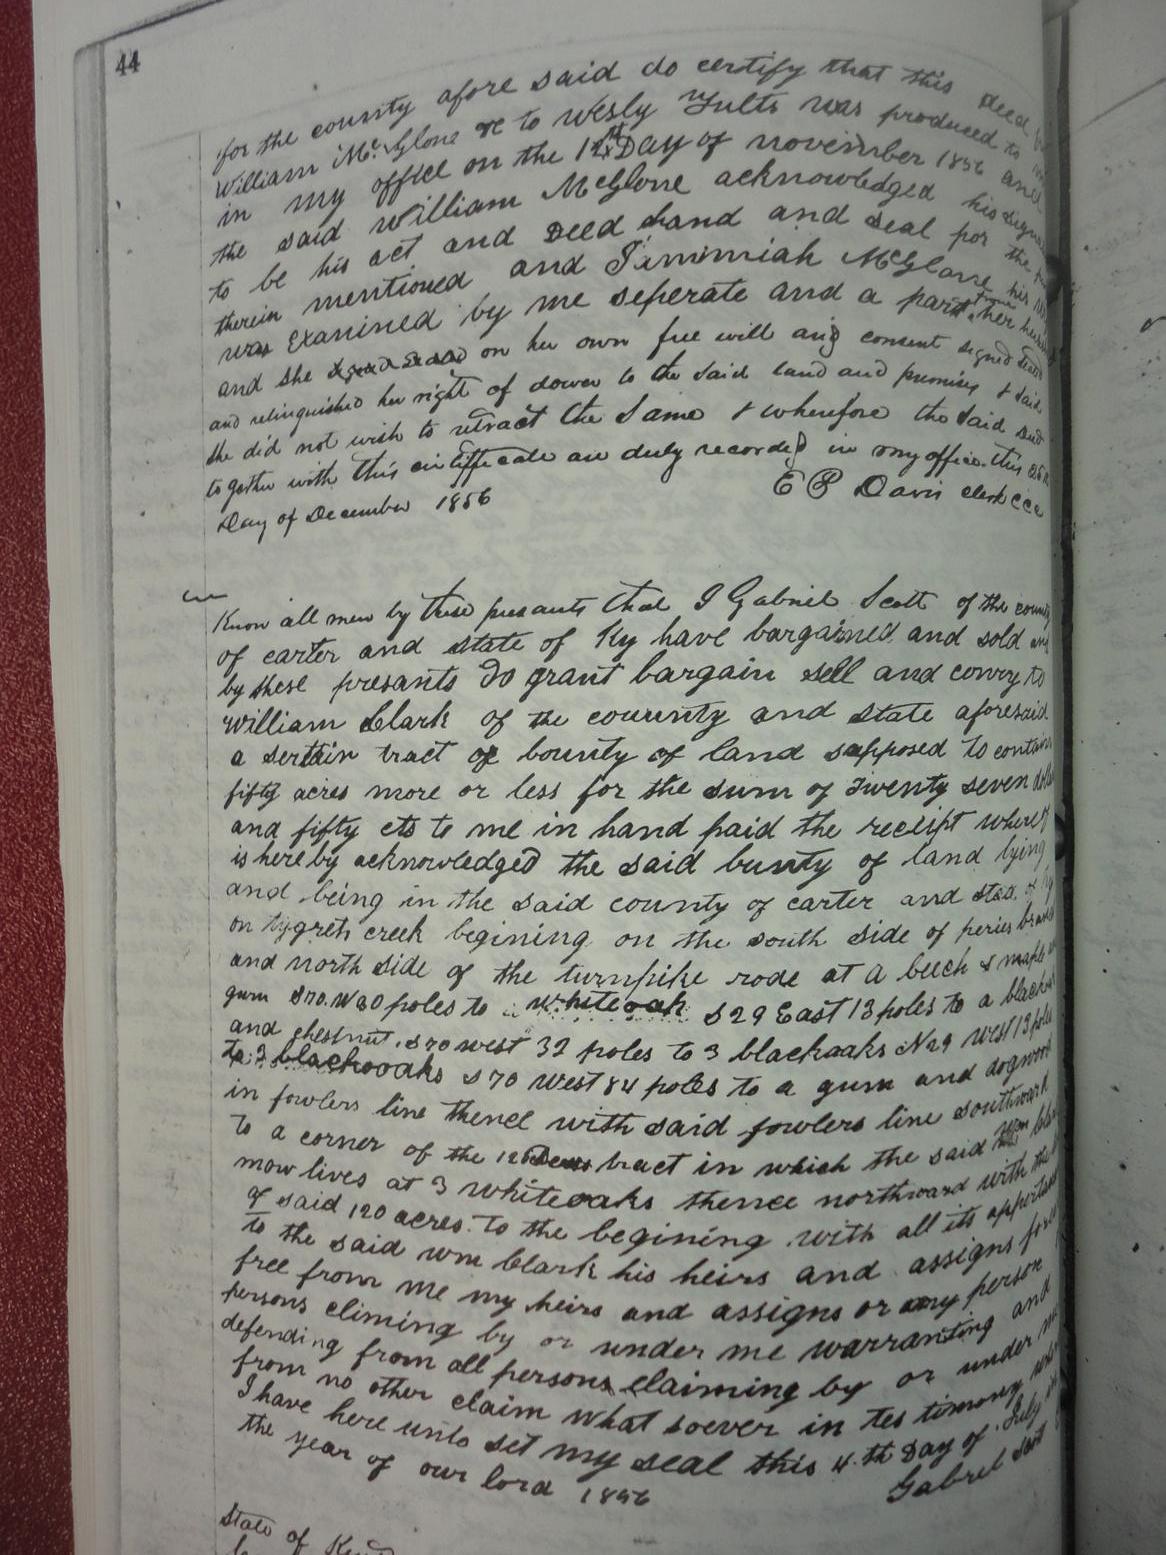 44
for the county afore said do certify that this Deed
William Mc.Glone &c to Wesly Yults was produced to
in my office on the 12th Day of november 1856 and
the said William McGlone acknowledged his
to be his act and Deed hand and seal for the
therein mentioned and Jimimiah McGlone his
was Examined by me seperate and a part from her
and she on her own free will and consent signed
and relinquished her right of dower to the said land and premises & said
she did not wish to retract the same & wherefore the said
together with this certifficate are duly recorded in my office this
Day of December 1856 E B Davis clerk C C C
Know all men by these presants that I Gabriel Scott of the county
of carter and state of Ky have bargained and sold and
by these presants do grant bargain sell and convey to
William Clark of the couunty and state aforesaid
a sertain tract of bounty of land supposed to contain
fifty acres more or less for the sum of Twenty seven
and fifty cts to me in hand paid the receipt whereof
is here by acknowledged the said bunty of land lying
and being in the said county of carter and
on tygrets creek begining on the south side of peries
and north side of the turnpike rode at a beech & maple
gum S70.W20 poles to a whiteoak S29 East 13 poles to a
and chestnut. S70 west 32 poles to 3 blackoaks N29 West 13 poles
to 3 blackooaks S70 west 84 poles to a gum and dogwood
in fowlers line thence with said fowlers line southward
to a corner of the 120 tract in which the said
now lives at 3 whiteoaks thence northward with the
of said 120 acres. to the begining with all its
to the said wm Clark his heirs and assigns
free from me my heirs and assigns or any person
persons climing by or under me warranting and
defending from all persons claiming by or under
from no other claim what soever in tes timony
I have here unto set my seal this 4.th Day of July
the year of our lord 1856 Gabrel
State of